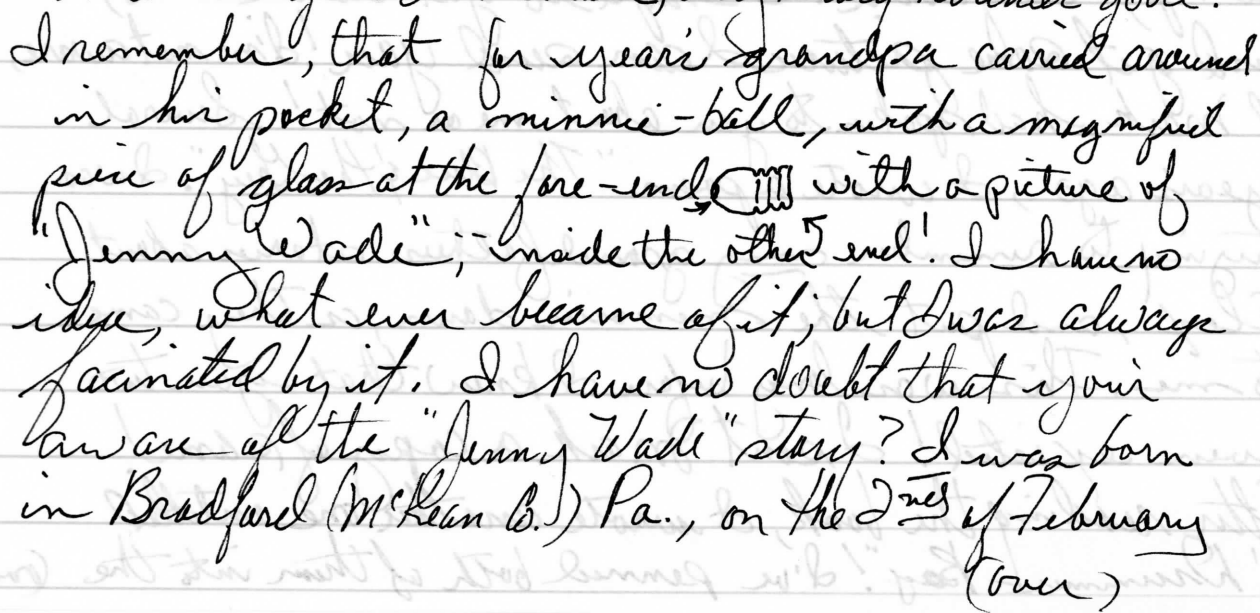 I remember, that for year's grandpa carried around
in his pocket, a minnie-ball, with a magnified
piece of glass at the fore-end, with a picture of
"Jenny Wade", inside the other end! I have no
idea, what ever became of it; but I was always
facinated by it. I have no doubt that your
aware of the "Jenny Wade" story? I was born
in Bradford (McKean Co.) Pa., on the 2nd of February
(over)